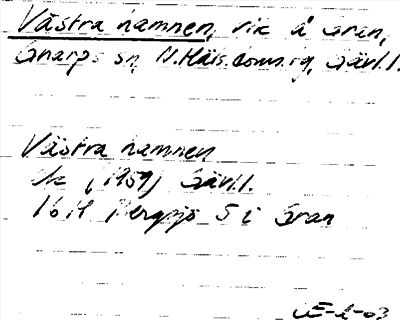 Västra hamnen, vik å Gran,
Gnarps sn, N.Häls. doms.g, Gävl.l.
Västra hamnen
Ek (1959) Gävl.l.
16H Bergsjö S i Gran